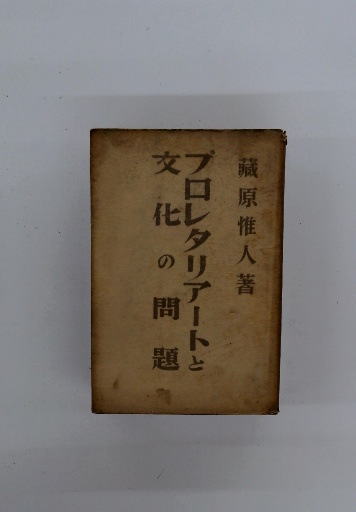 藏原惟人著
プロレタリアートと
文化の問題